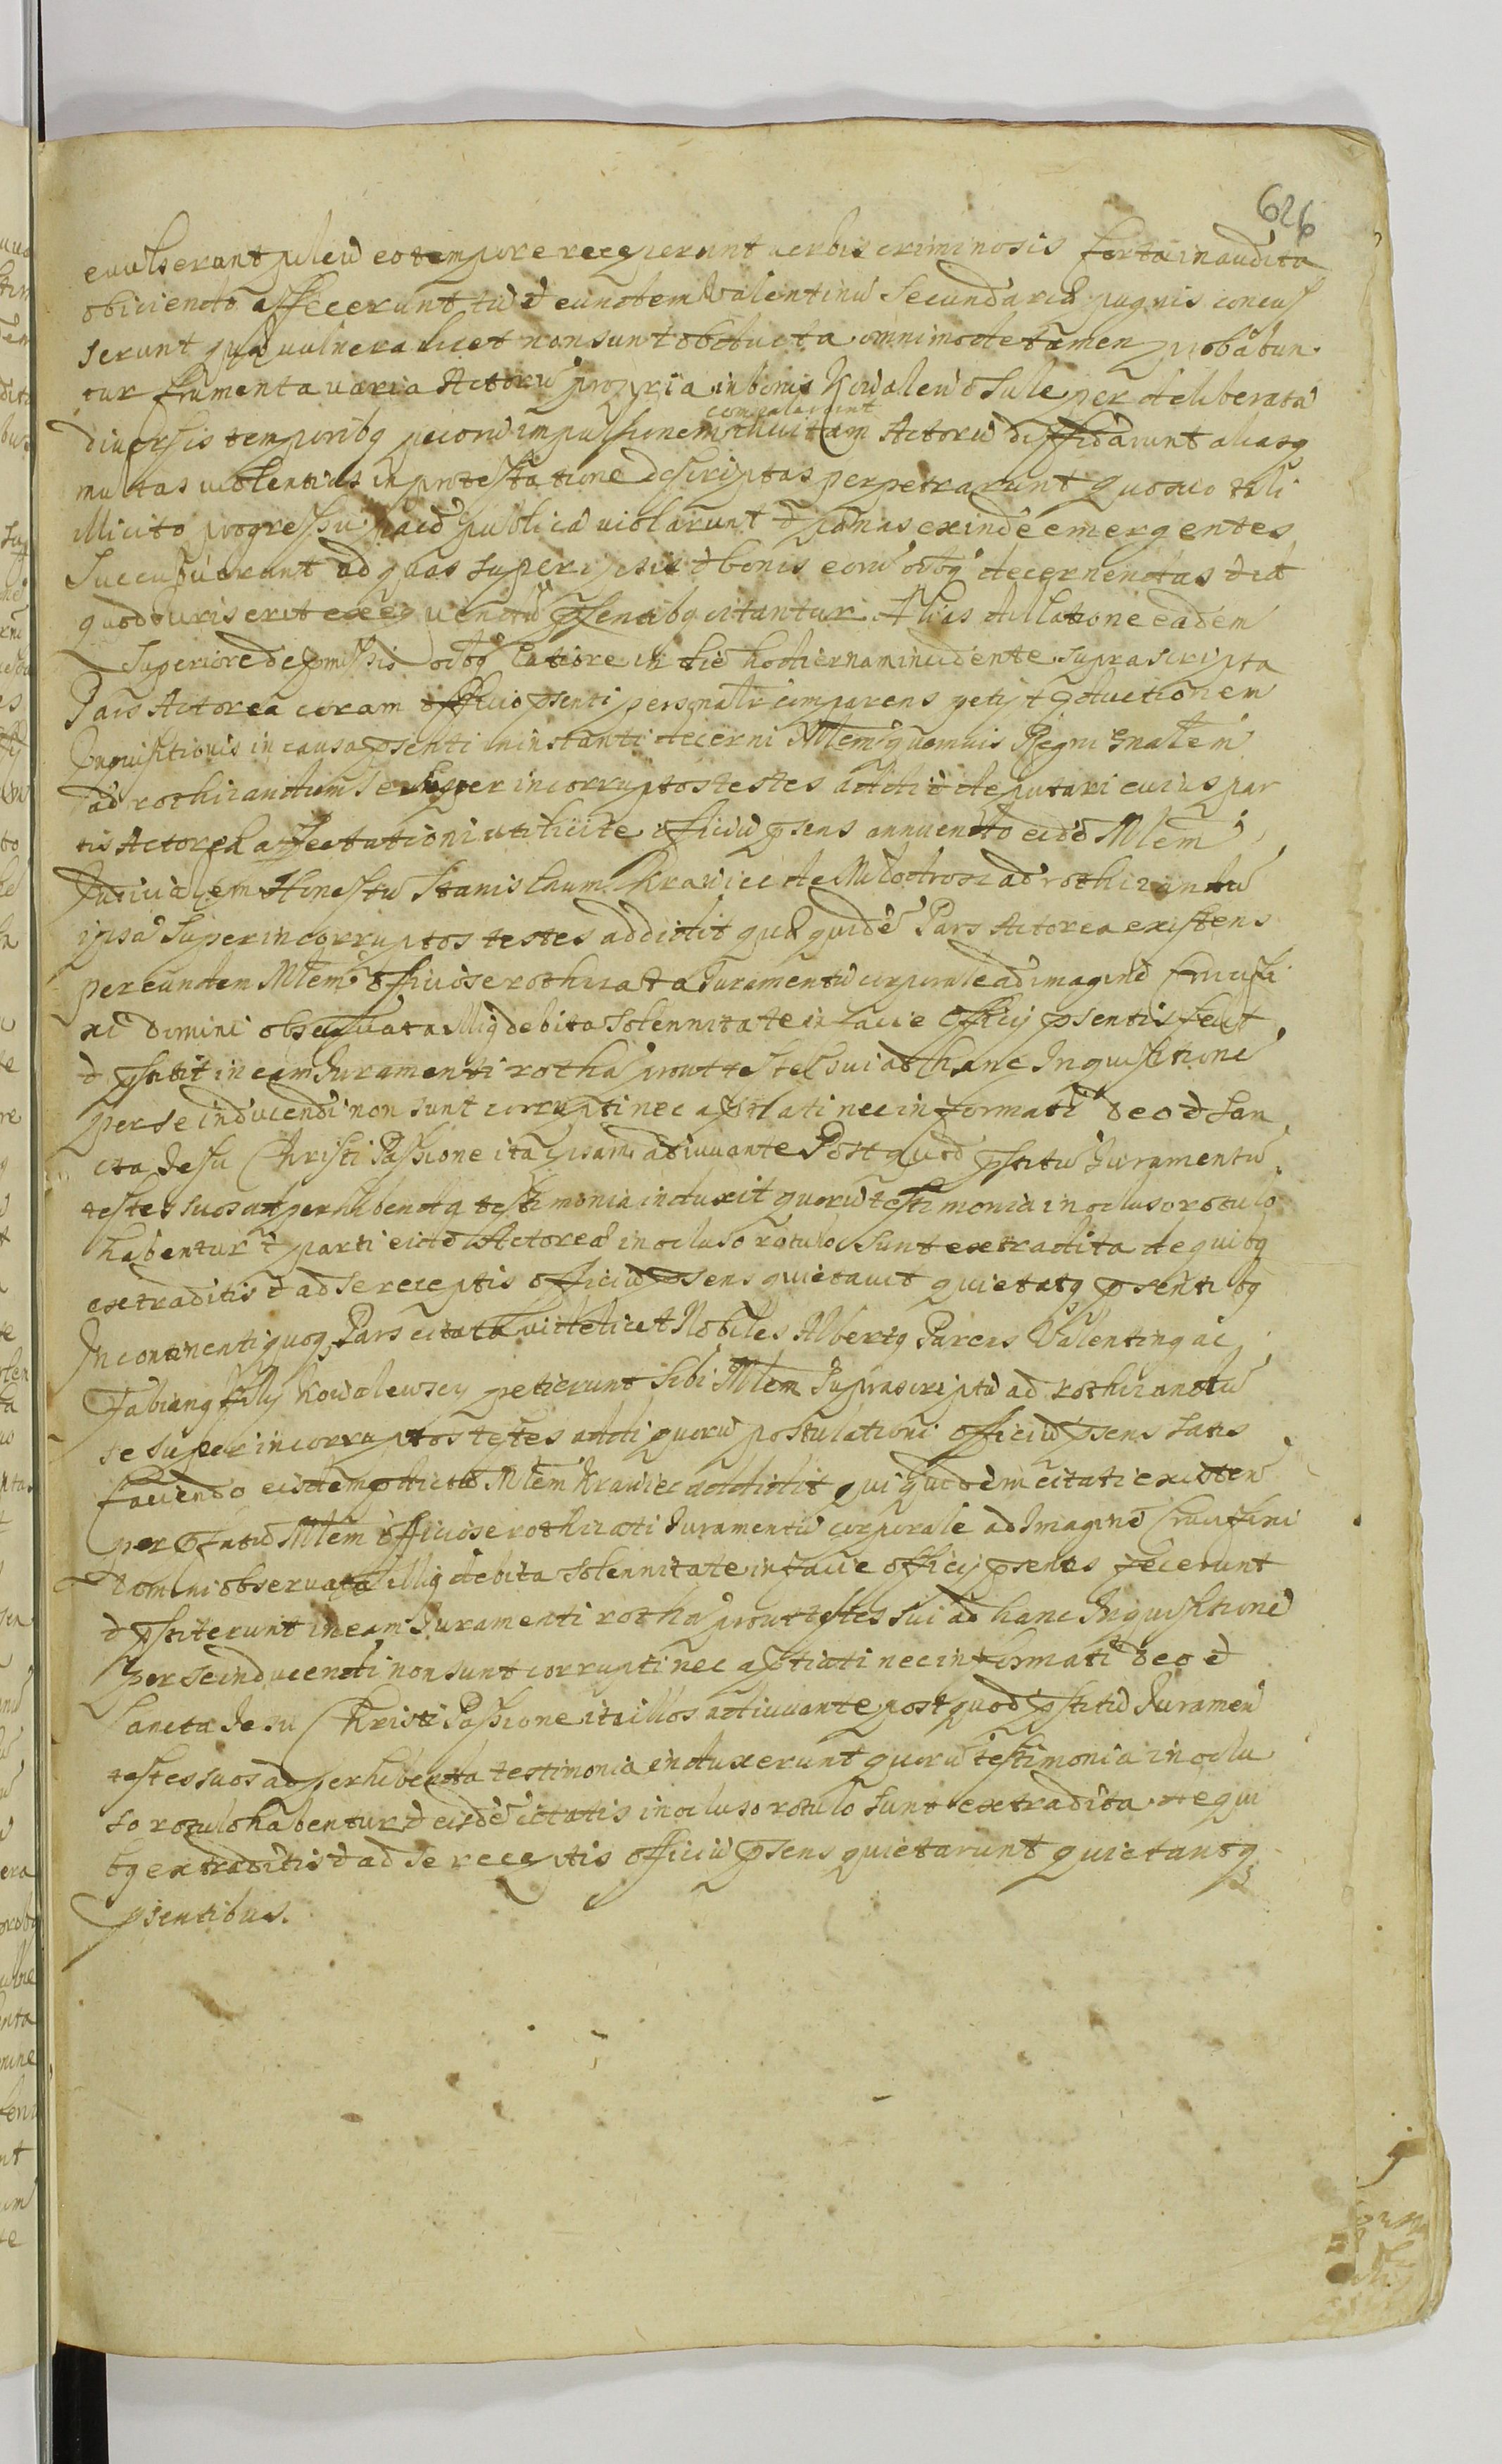 626
evulserunt pileũ eo tempore receperunt verbis criminosis furta inaudita
obiciendo affecerunt tũ et eundem Valentinũ Secundaria pugnis concus
serunt quæ vulnera licet non sunt obducta omnimode tamen probabun
tur frumenta varia Actorũ propria in bonis Kowalewo Sule per deliberatã
comeatarunt
diversis temporibq pecorũ impulsionem Actorũ diffidarunt aliasq
multas violentias in protestatione descriptas perpetrarunt Quo suo tali
illicito progressu pacẽ publicã violarunt et pœnas exinde emergentes
Succubuerunt ad quas super ipsis et bonis eorũ oĩbq decernendas et id
quod Juris erit exequendũ psentibq citantur. Alias dillatione eadem
Superiore de pmissis oĩbq Latiore in diẽ hodiernam incidente suprascripta
Pars Actorea coram officio psenti personalr comparens petijt pductionem
Inquisitionis in causa psenti in instanti decerni Mlem quemuis Regni gnalem
ad rothizandum se super incorruptos testes addi et deputari cuius par
tis Actoreæ affectationi uti licite officiũ psens annuendo eidẽ Mlem
Judicialem Honestũ Stanislaum Krawiec de ad rothizandũ
ipsã super incorruptos testes addidit quæ quidẽ Pars Actorea existens
per eundem Mlem officiose rothizata Juramentũ corporale ad imaginẽ Crucifi
xi Domini observata illiq debita solennitate in facie Officij psentis fecit
et pstitit in eam Juramenti rothã prout testes sui ad hanc Inquisitionẽ
per se inducendi non sunt corrupti nec aptati nec informati Deo et San
cta Jesu Christi Passione ita ipsam adiuuante Post quod pstitũ Juramentũ
testes suos ad perhibenda testimonia induxit quorũ testimonia in ocluso rotulo
habentur et parti eidẽ Actoreæ in ocluso rotulo sunt extradita de quibq
extraditis et ad se receptis officiũ psens quietauit quietatq psentibq
In continenti quoq Pars citata videlicet Nobiles Albertq Parens Valentinq ac
Fabianq filij Kowalewscy petierunt sibi Mlem Suprascriptũ ad rothizandũ
se super incorruptos testes addi quorũ postulationi officiũ psens satis
faciendo eisdem pdictũ Mlem Krawiec addidit qui quidem citati existen
per pfatũ Mlem officiose rothizati Juramentũ corporale ad Imaginẽ Crucifixi
Domini observata illiq debita solennitate in facie officij psentis fecerunt
et pstiterunt in eam Juramenti rothã prout testes sui ad hanc Inquisitionẽ
per se inducendi non sunt corrupti nec aptati nec informati Deo et
Sancta Jesu Christi Passione ita illos adiuuante post quod pstitũ Juramen
testes suos ad perhibenda testimonia induxerunt quorũ testimonia in oclu
so rotulo habentur et eisdẽ citatis in ocluso rotulo sunt extradita de qui
bq extraditis et ad se receptis officiũ psens quietarunt quietantq
psentibus.